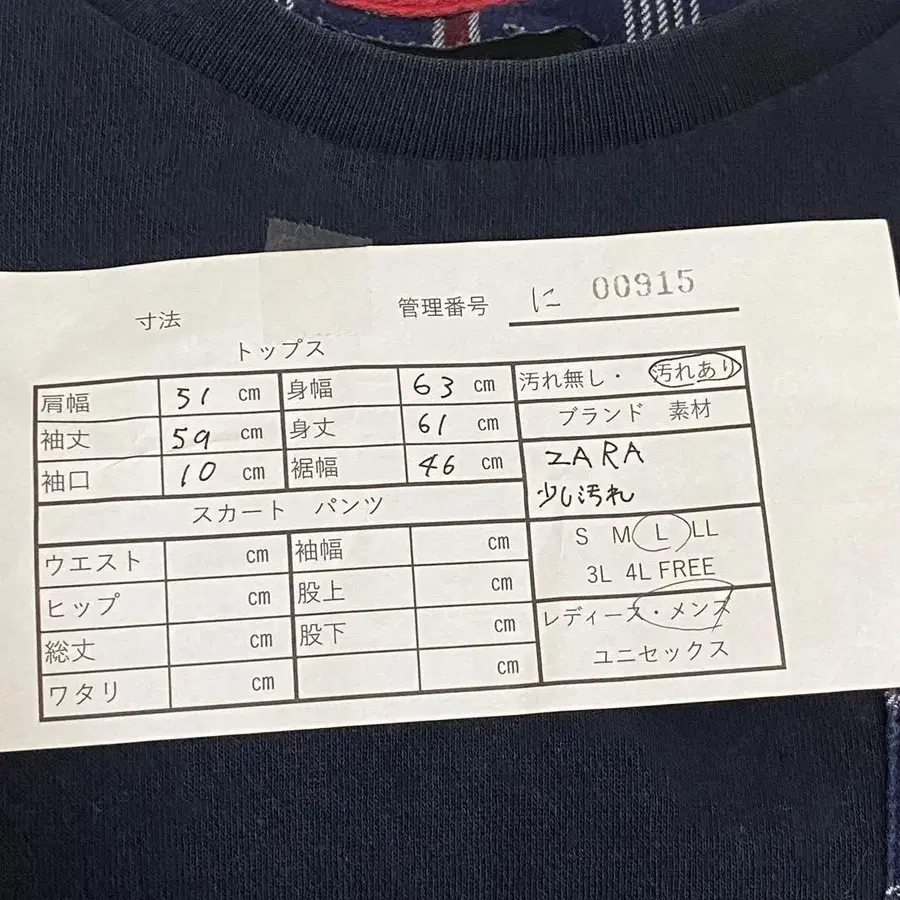 寸法
管理番号 に 00915
トップス
肩幅 51 cm 身幅 63 cm 汚れ無し・汚れあり
袖丈 59 cm 身丈 61 cm ブランド 素材
袖口 10 cm 裾幅 46 cm ZARA
少し汚れ
スカート パンツ
ウエスト cm 袖幅 cm S M L LL
3L 4L FREE
ヒップ cm 股上 cm
総丈 cm 股下 cm レディース・メンズ
ユニセックス
ワタリ cm cm